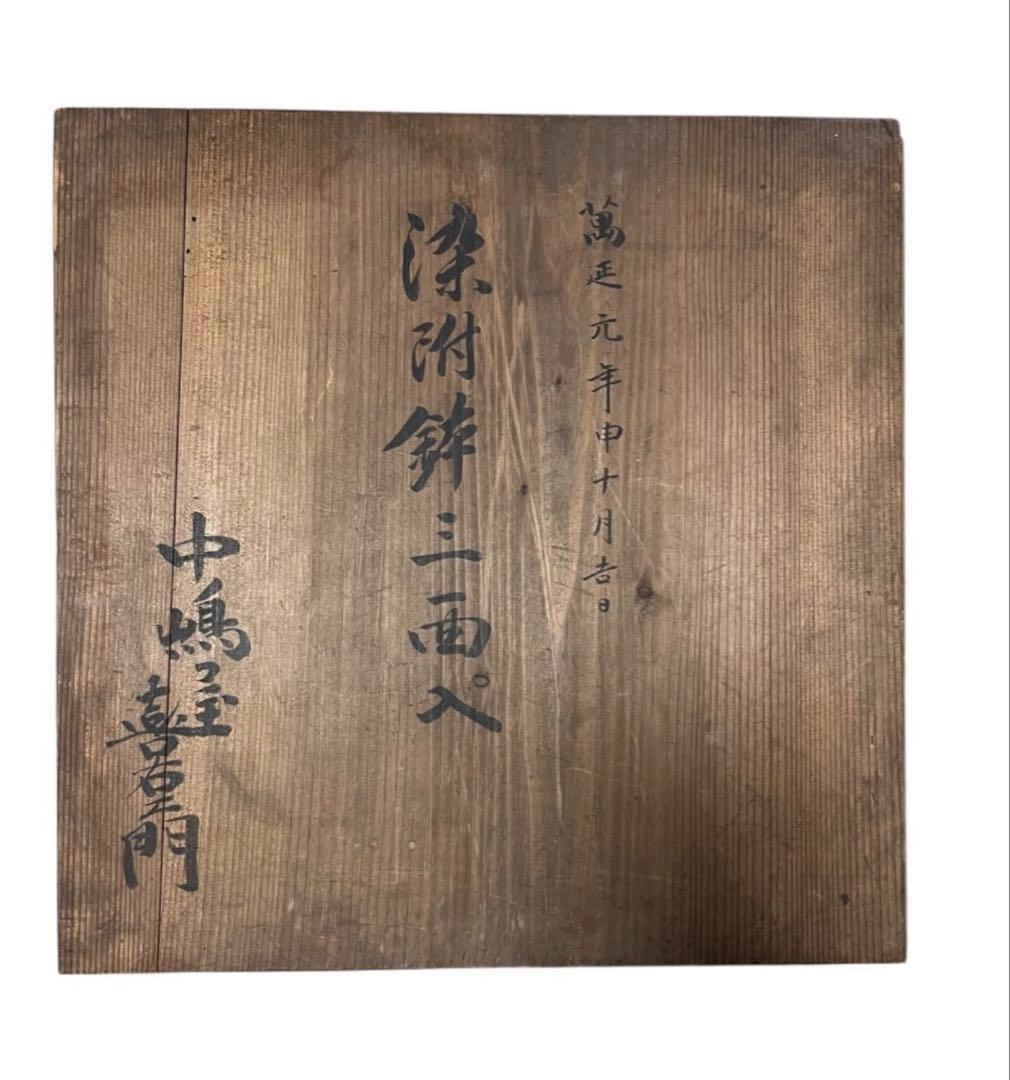 萬延元年申十月吉日
染附鉢三面入
中嶋屋喜右エ門